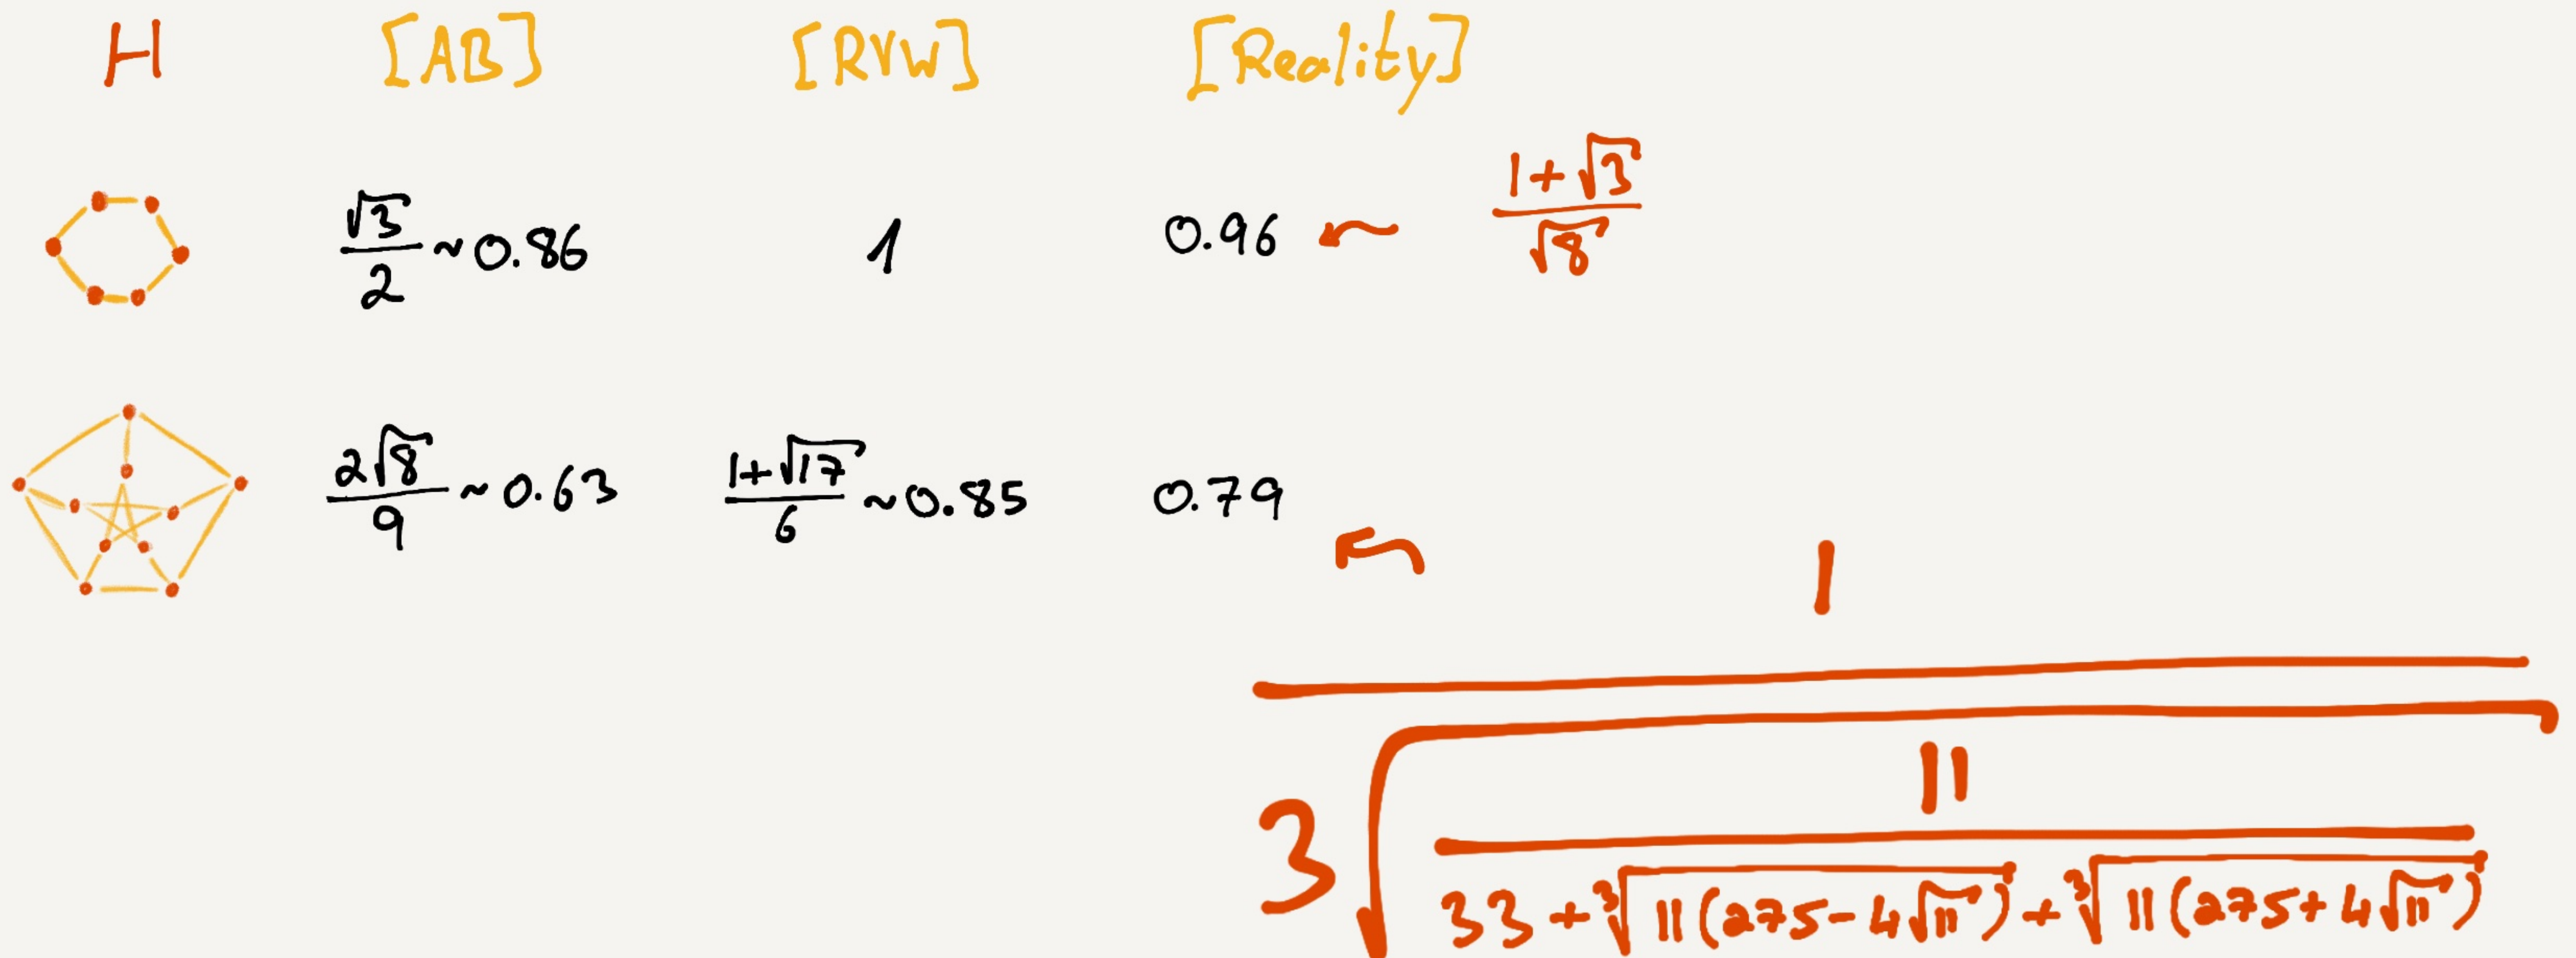 H [AB] [RVW] [Reality]
√3/2 ~ 0.86 1 0.96 ← (1+√3)/√8
2√8/9 ~ 0.63 (1+√17)/6 ~ 0.85 0.79 ←
1
11
3√
33 + ∛(11(275-4√11)) + ∛(11(275+4√11))